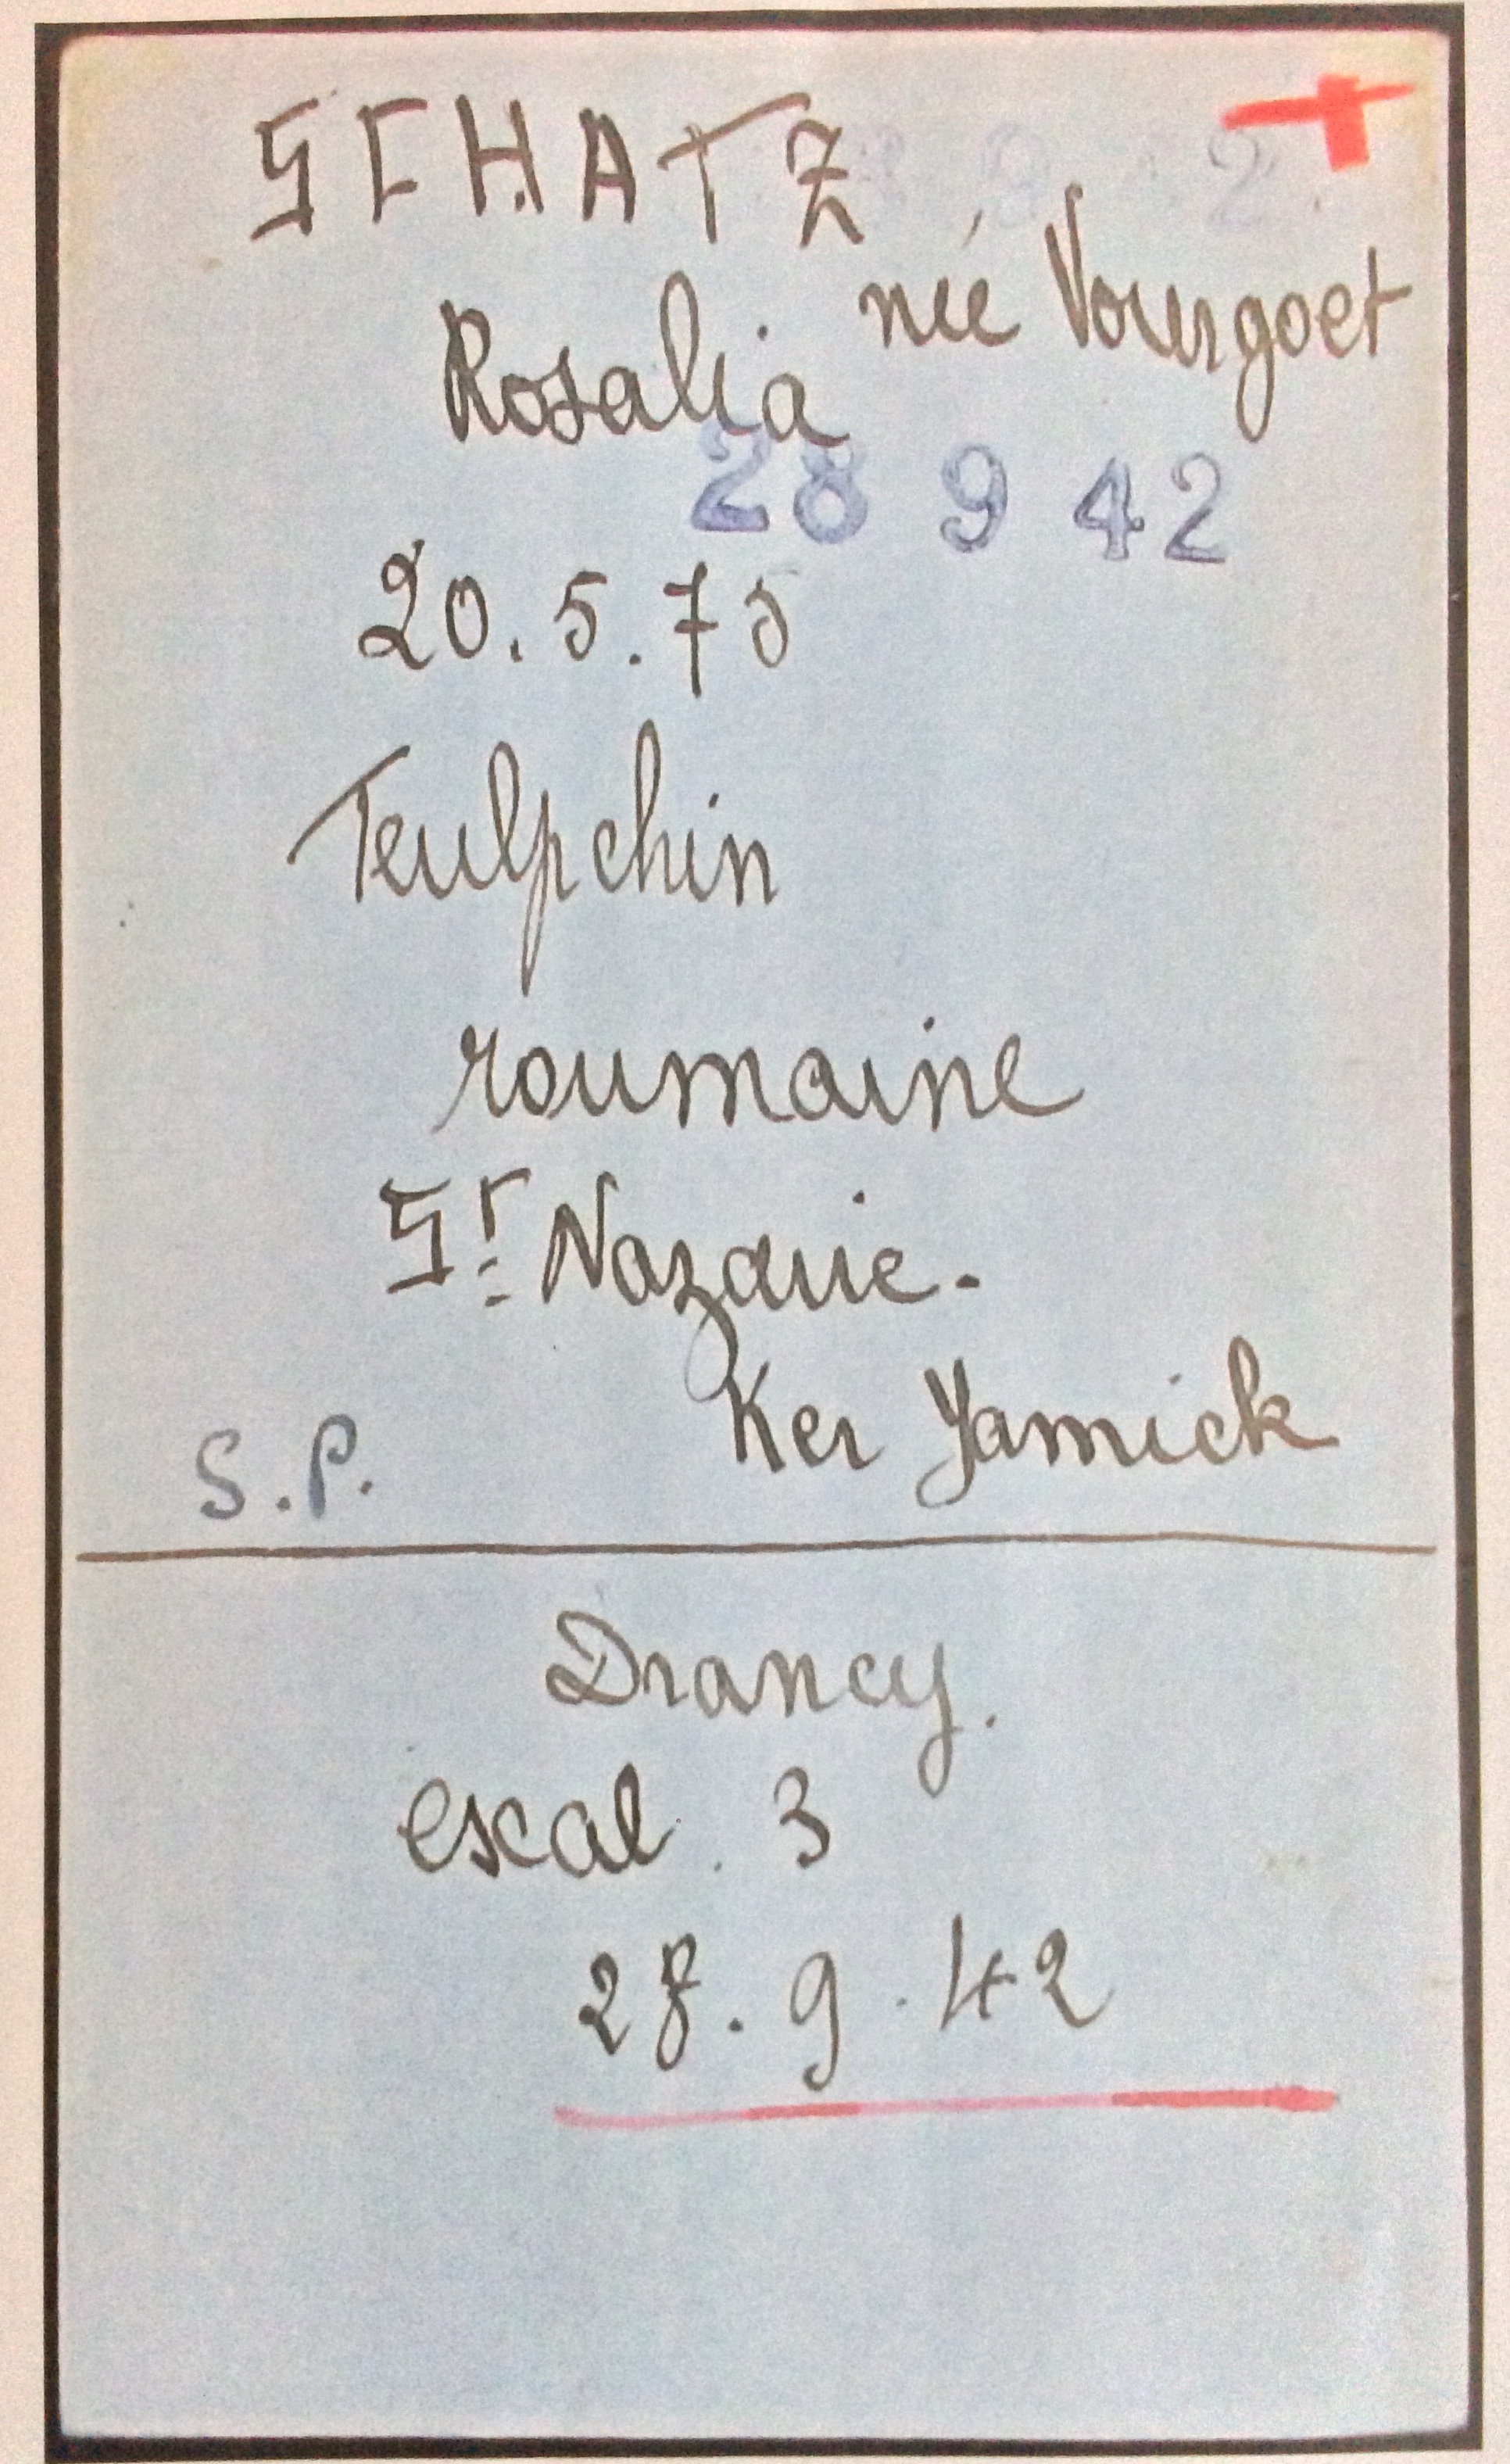 SCHATZ
née Vourgoet
Rosalia
28 9 42
20.5.75
Teulpchin
roumaine
St Nazaire.
Ker Yamick
S.P.
Drancy.
escal. 3
28.9.42